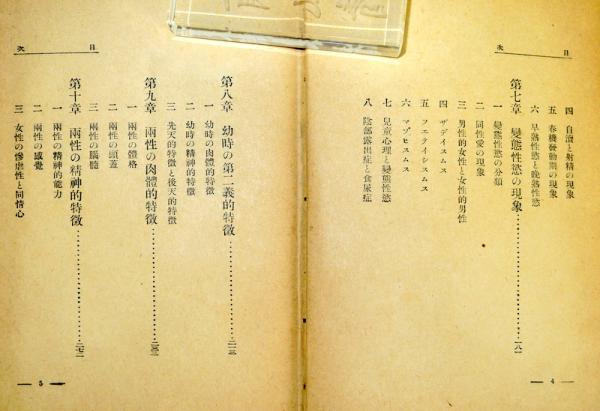 目次
四 自瀆と射精の現象
五 春機發動期の現象
六 早熟性慾と晩熟性慾
第七章 變態性慾の現象……一八一
一 變態性慾の分類
二 同性愛の現象
三 男性的女性と女性的男性
四 ザデイスムス
五 フエテイシスムス
六 マゾヒスムス
七 兒童心理と變態性慾
八 陰部露出症と食屎症
— 4 —
目次
第八章 幼時の第二義的特徵……二一三
一 幼時の肉體的特徵
二 幼時の精神的特徵
三 先天的特徵と後天的特徵
第九章 兩性の肉體的特徵
一 兩性の體格
二 兩性の頭蓋
三 兩性の腦髓
第十章 兩性の精神的特徵
一 兩性の精神的能力
二 兩性の感覺
三 女性の慘虐性と同情心
— 5 —